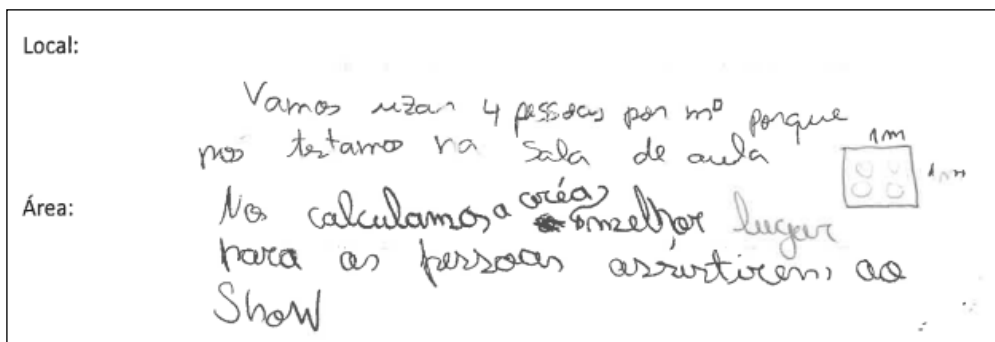 Local:
Vamos uzar 4 pessoas por m² porque
nos testamos na sala de aula
1m
1m
Área:
Nos calculamos a aréa melhor lugar
para as pessoas assistirem ao
Show